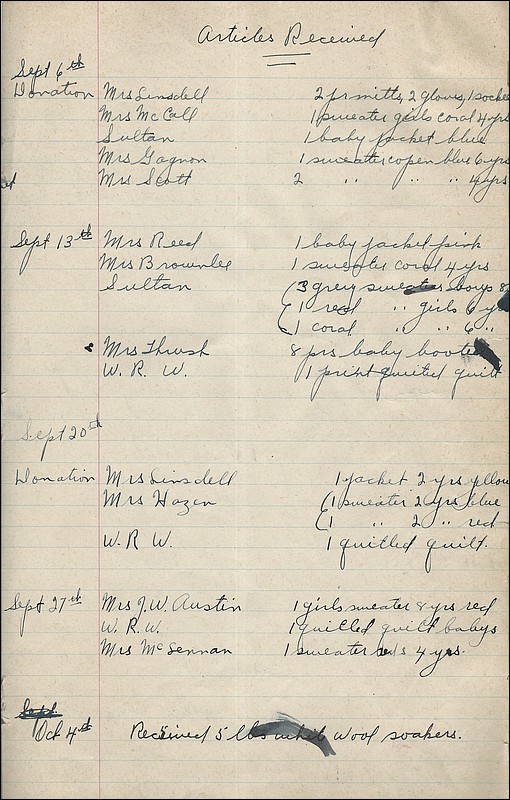 Articles Received
Sept 6th
Donation Mrs Linsdell 2 pr mitts, 2 gloves, 1 socke
Mrs McCall 1 sweater girls coral 4 yrs
Sultan 1 baby jacket blue
Mrs Gagnon 1 sweater copen blue 6 yrs
Mrs Scott 2 " " " 4 yrs
Sept 13th Mrs Reed 1 baby jacket pink
Mrs Brownlee 1 sweater coral 4 yrs
Sultan (3 grey sweaters boys 8
(1 red " girls 6 yr
(1 coral " " 6 "
Mrs Thrush 8 prs baby bootees
W. R. W. 1 print quilted quilt
Sept 20th
Donation Mrs Linsdell 1 jacket 2 yrs yellow
Mrs Hazen (1 sweater 2 yrs blue
(1 " 2 " red
W. R W. 1 quilled quilt.
Sept 27th Mrs J. W. Austin 1 girls sweater 8 yrs red
W. R. W. 1 quilled quilt babys
Mrs McLennan 1 sweater 4 yrs.
Sept.
Oct 4th Received 5 lbs whit wool soakers.